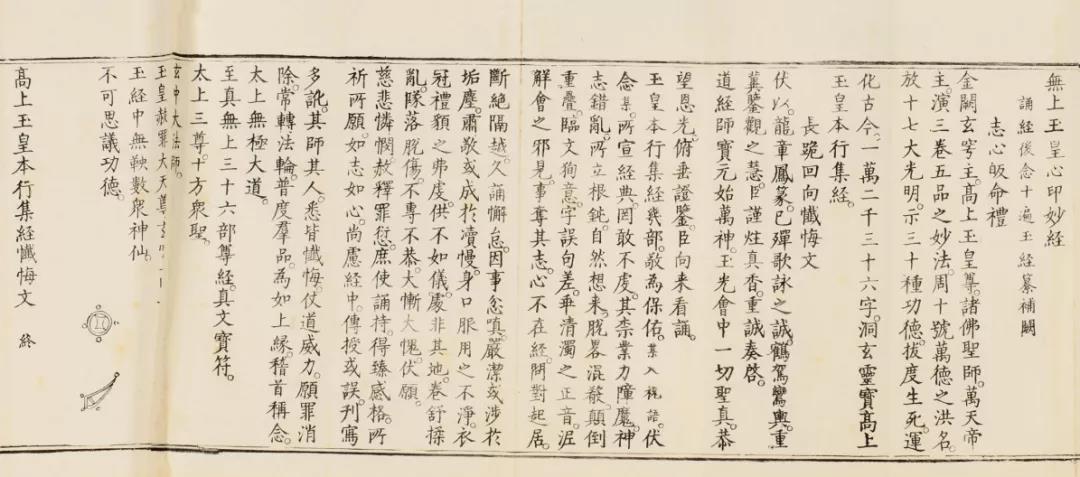 無上玉皇心印妙經
誦經後念十遍玉經纂補闕
志心皈命禮
金闕玄穹主。高上玉皇尊。諸佛聖師。萬天帝
主。演三卷五品之妙法。周十號萬德之洪名。
放十七大光明。示三十種功德。拔度生死。運
化古今。一萬二千三十六字。洞玄靈寶高上
玉皇本行集經。
長跪回向懺悔文
伏以。龍章鳳篆。已殫歌詠之誠。鶴駕鸞輿。重
冀鑒觀之慧。臣謹炷真香。重誠奏啓。
道經師寶。元始萬神。玉光會中一切聖真。恭
望恩光。俯垂證鑒。臣向來看誦。
玉皇本行集經幾部。敬為保佑。某入祝語。伏
念某。所宣經典。罔敢不虔。其柰業力障魔。神
志錯亂。所立根鈍。自然想來。脫畧混殽。顛倒
重疊。臨文狥意。字誤句差。乖清濁之正音。泥
解會之邪見。事奪其志。心不在經。問對起居。
斷絕隔越。久誦懈怠。因事忿嗔。嚴潔或涉於
垢塵。肅敬或成於瀆慢。身口服用之不淨。衣
冠禮貌之弗虔。供不如儀。處非其地。卷舒揉
亂。墜落脫傷。不專不恭。大慚大愧。伏願。
慈悲憐憫。赦釋罪愆。庶使誦持。得臻感格。所
祈所願。如志如心。尚慮經中。傳授或誤。刋寫
多訛。其師其人。悉皆懺悔。仗道威力。願罪消
除。常轉法輪。普度羣品。為如上緣。稽首稱念。
太上無極大道。
至真無上三十六部尊經。真文寶符。
太上三尊。十方衆聖。
玄中大法師。
玉皇赦罪大天尊玄
玉經中無鞅數衆神仙。
不可思議功德。
高上玉皇本行集經懺悔文 終